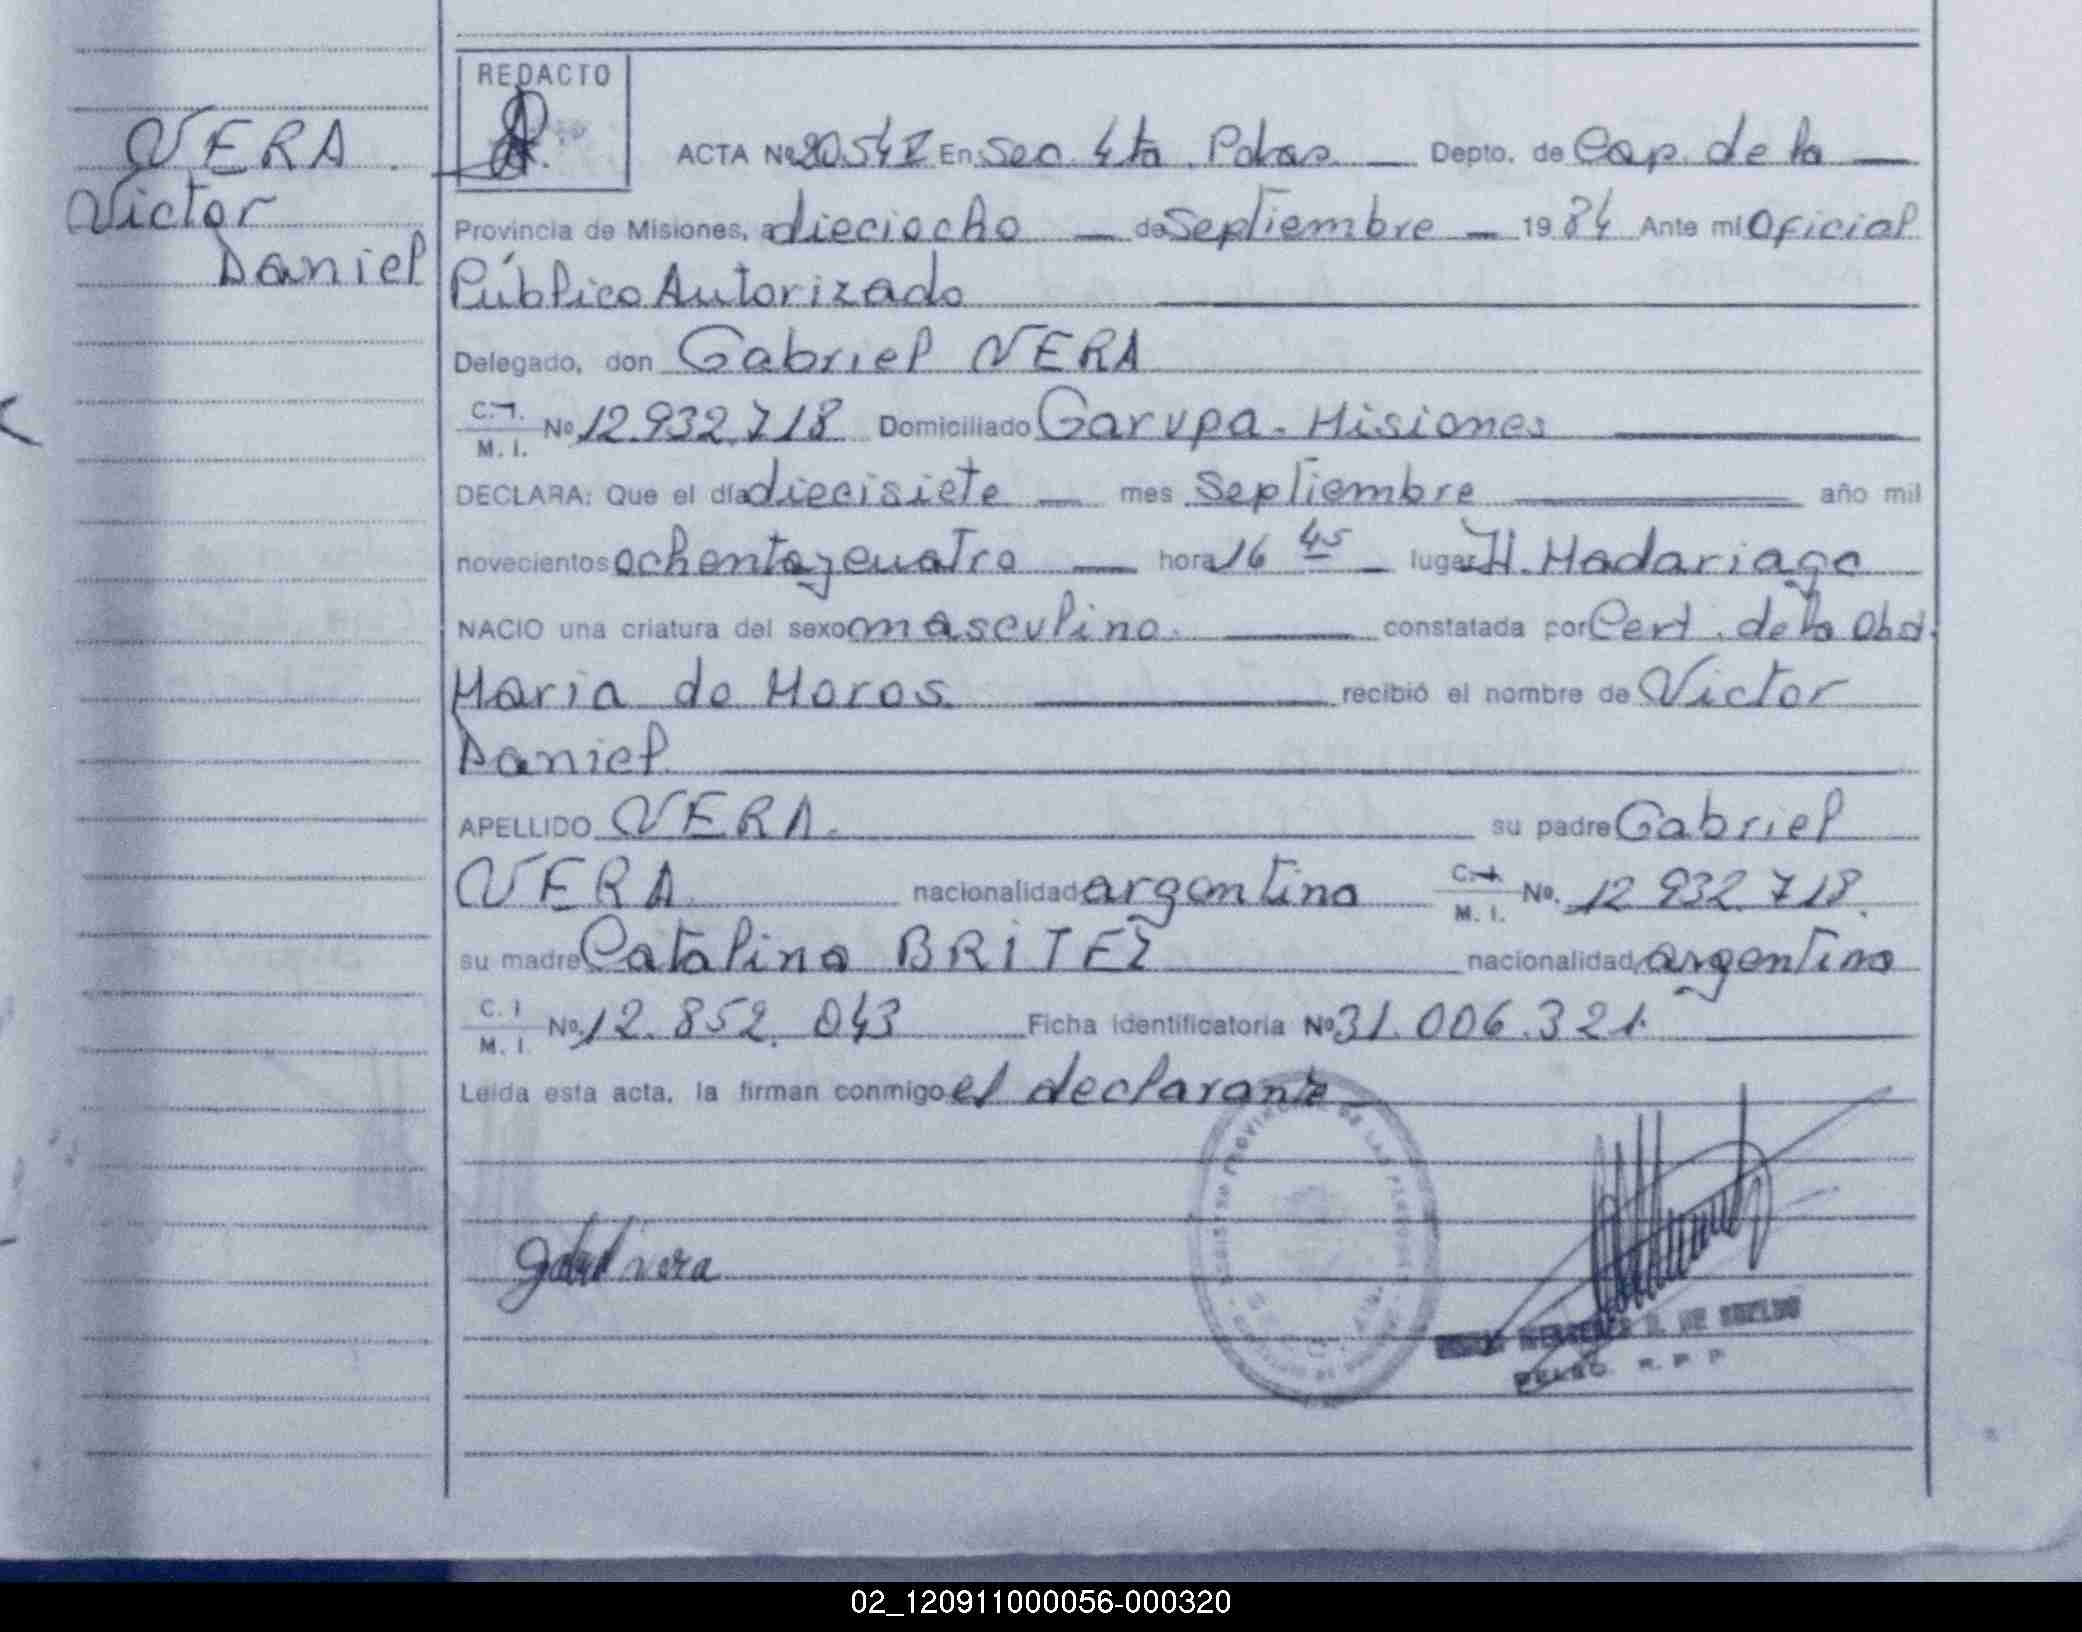 VERA
Victor
Daniel
REDACTO
ACTA Nº 20.54 En Sec. 4ta. Pdas. — Depto. de Cap. de la —
Provincia de Misiones, a dieciocho — de Septiembre — 19 84 Ante mi Oficial
Público Autorizado
Delegado, don Gabriel VERA
C.I. M. I. Nº 12.932.718 Domiciliado Garupa - Misiones
DECLARA: Que el día diecisiete — mes Septiembre año mil
novecientos ochenta y cuatro — hora 16 45 — lugar H. Madariaga
NACIO una criatura del sexo masculino. constatada por Cert. de la Obst.
Maria de Moros recibió el nombre de Victor
Daniel
APELLIDO VERA. su padre Gabriel
VERA nacionalidad argentina C.I. M. I. No. 12.932.718.
su madre Catalina BRITEZ nacionalidad argentina
C. I M. I. Nº 12.852.043 Ficha identificatoria Nº 31.006.321.
Leída esta acta, la firman conmigo el declarante
PROVINCIAL DE LAS PERSONAS
Gabriel vera
DELEG. R. P. P
02_120911000056-000320